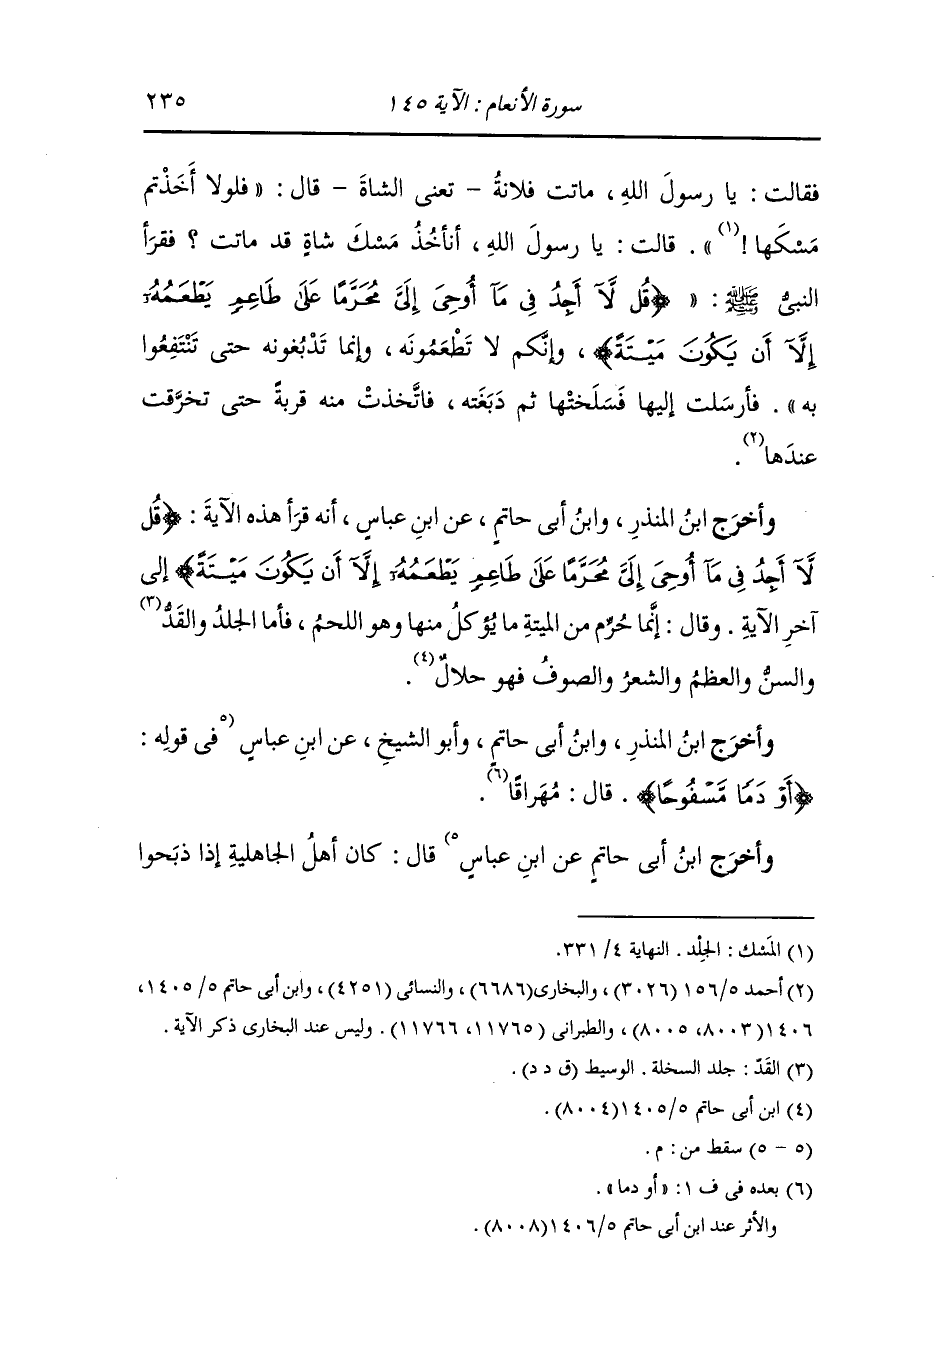 سورة الأنعام : الآية ١٤٥ ٢٣٥
فقالت : يا رسولَ اللهِ ، ماتت فلانةُ – تعنى الشاةَ – قال : « فلولا أَخَذْتم
مَسْكَها !(١)» . قالت : يا رسولَ اللهِ ، أنأخُذُ مَسْكَ شاةٍ قد ماتت ؟ فقرَأ
النبىُّ ﷺ : « ﴿قُل لَّآ أَجِدُ فِى مَآ أُوحِىَ إِلَىَّ مُحَرَّمًا عَلَىٰ طَاعِمٍ يَطْعَمُهُۥٓ
إِلَّآ أَن يَكُونَ مَيْتَةً﴾ ، وإنَّكم لا تَطْعَمُونَه ، وإنما تَدْبُغونه حتى تَنْتَفِعُوا
به » . فأرسَلت إليها فَسَلَختْها ثم دَبَغَته ، فاتَّخذتْ منه قربةً حتى تخرَّقت
عندَها(٢).
وأخرَج ابنُ المنذرِ ، وابنُ أبى حاتمٍ ، عن ابنِ عباسٍ ، أنه قرَأ هذه الآيةَ : ﴿قُل
لَّآ أَجِدُ فِى مَآ أُوحِىَ إِلَىَّ مُحَرَّمًا عَلَىٰ طَاعِمٍ يَطْعَمُهُۥٓ إِلَّآ أَن يَكُونَ مَيْتَةً﴾ إلى
آخرِ الآيةِ . وقال : إنَّما حُرِّم من الميتةِ ما يُؤكلُ منها وهو اللحمُ ، فأما الجلدُ والقَدُّ(٣)
والسنُّ والعظمُ والشعرُ والصوفُ فهو حلالٌ(٤).
وأخرَج ابنُ المنذرِ ، وابنُ أبى حاتمٍ ، وأبو الشيخِ ، عن ابنِ عباسٍ (٥ فى قولِه :
﴿أَوْ دَمًا مَّسْفُوحًا﴾ . قال : مُهَراقًا(٦).
وأخرَج ابنُ أبى حاتمٍ عن ابنِ عباسٍ ٥) قال : كان أهلُ الجاهليةِ إذا ذبَحوا
(١) المَسْك : الجِلْد . النهاية ٤/ ٣٣١.
(٢) أحمد ١٥٦/٥ (٣٠٢٦) ، والبخارى(٦٦٨٦) ، والنسائى (٤٢٥١) ، وابن أبى حاتم ٥/ ١٤٠٥،
١٤٠٦(٨٠٠٣، ٨٠٠٥) ، والطبرانى (١١٧٦٥، ١١٧٦٦) . وليس عند البخارى ذكر الآية .
(٣) القَدّ : جلد السخلة . الوسيط (ق د د) .
(٤) ابن أبى حاتم ١٤٠٥/٥(٨٠٠٤) .
(٥ – ٥) سقط من : م .
(٦) بعده فى ف ١: «أو دما» .
والأثر عند ابن أبى حاتم ١٤٠٦/٥(٨٠٠٨) .